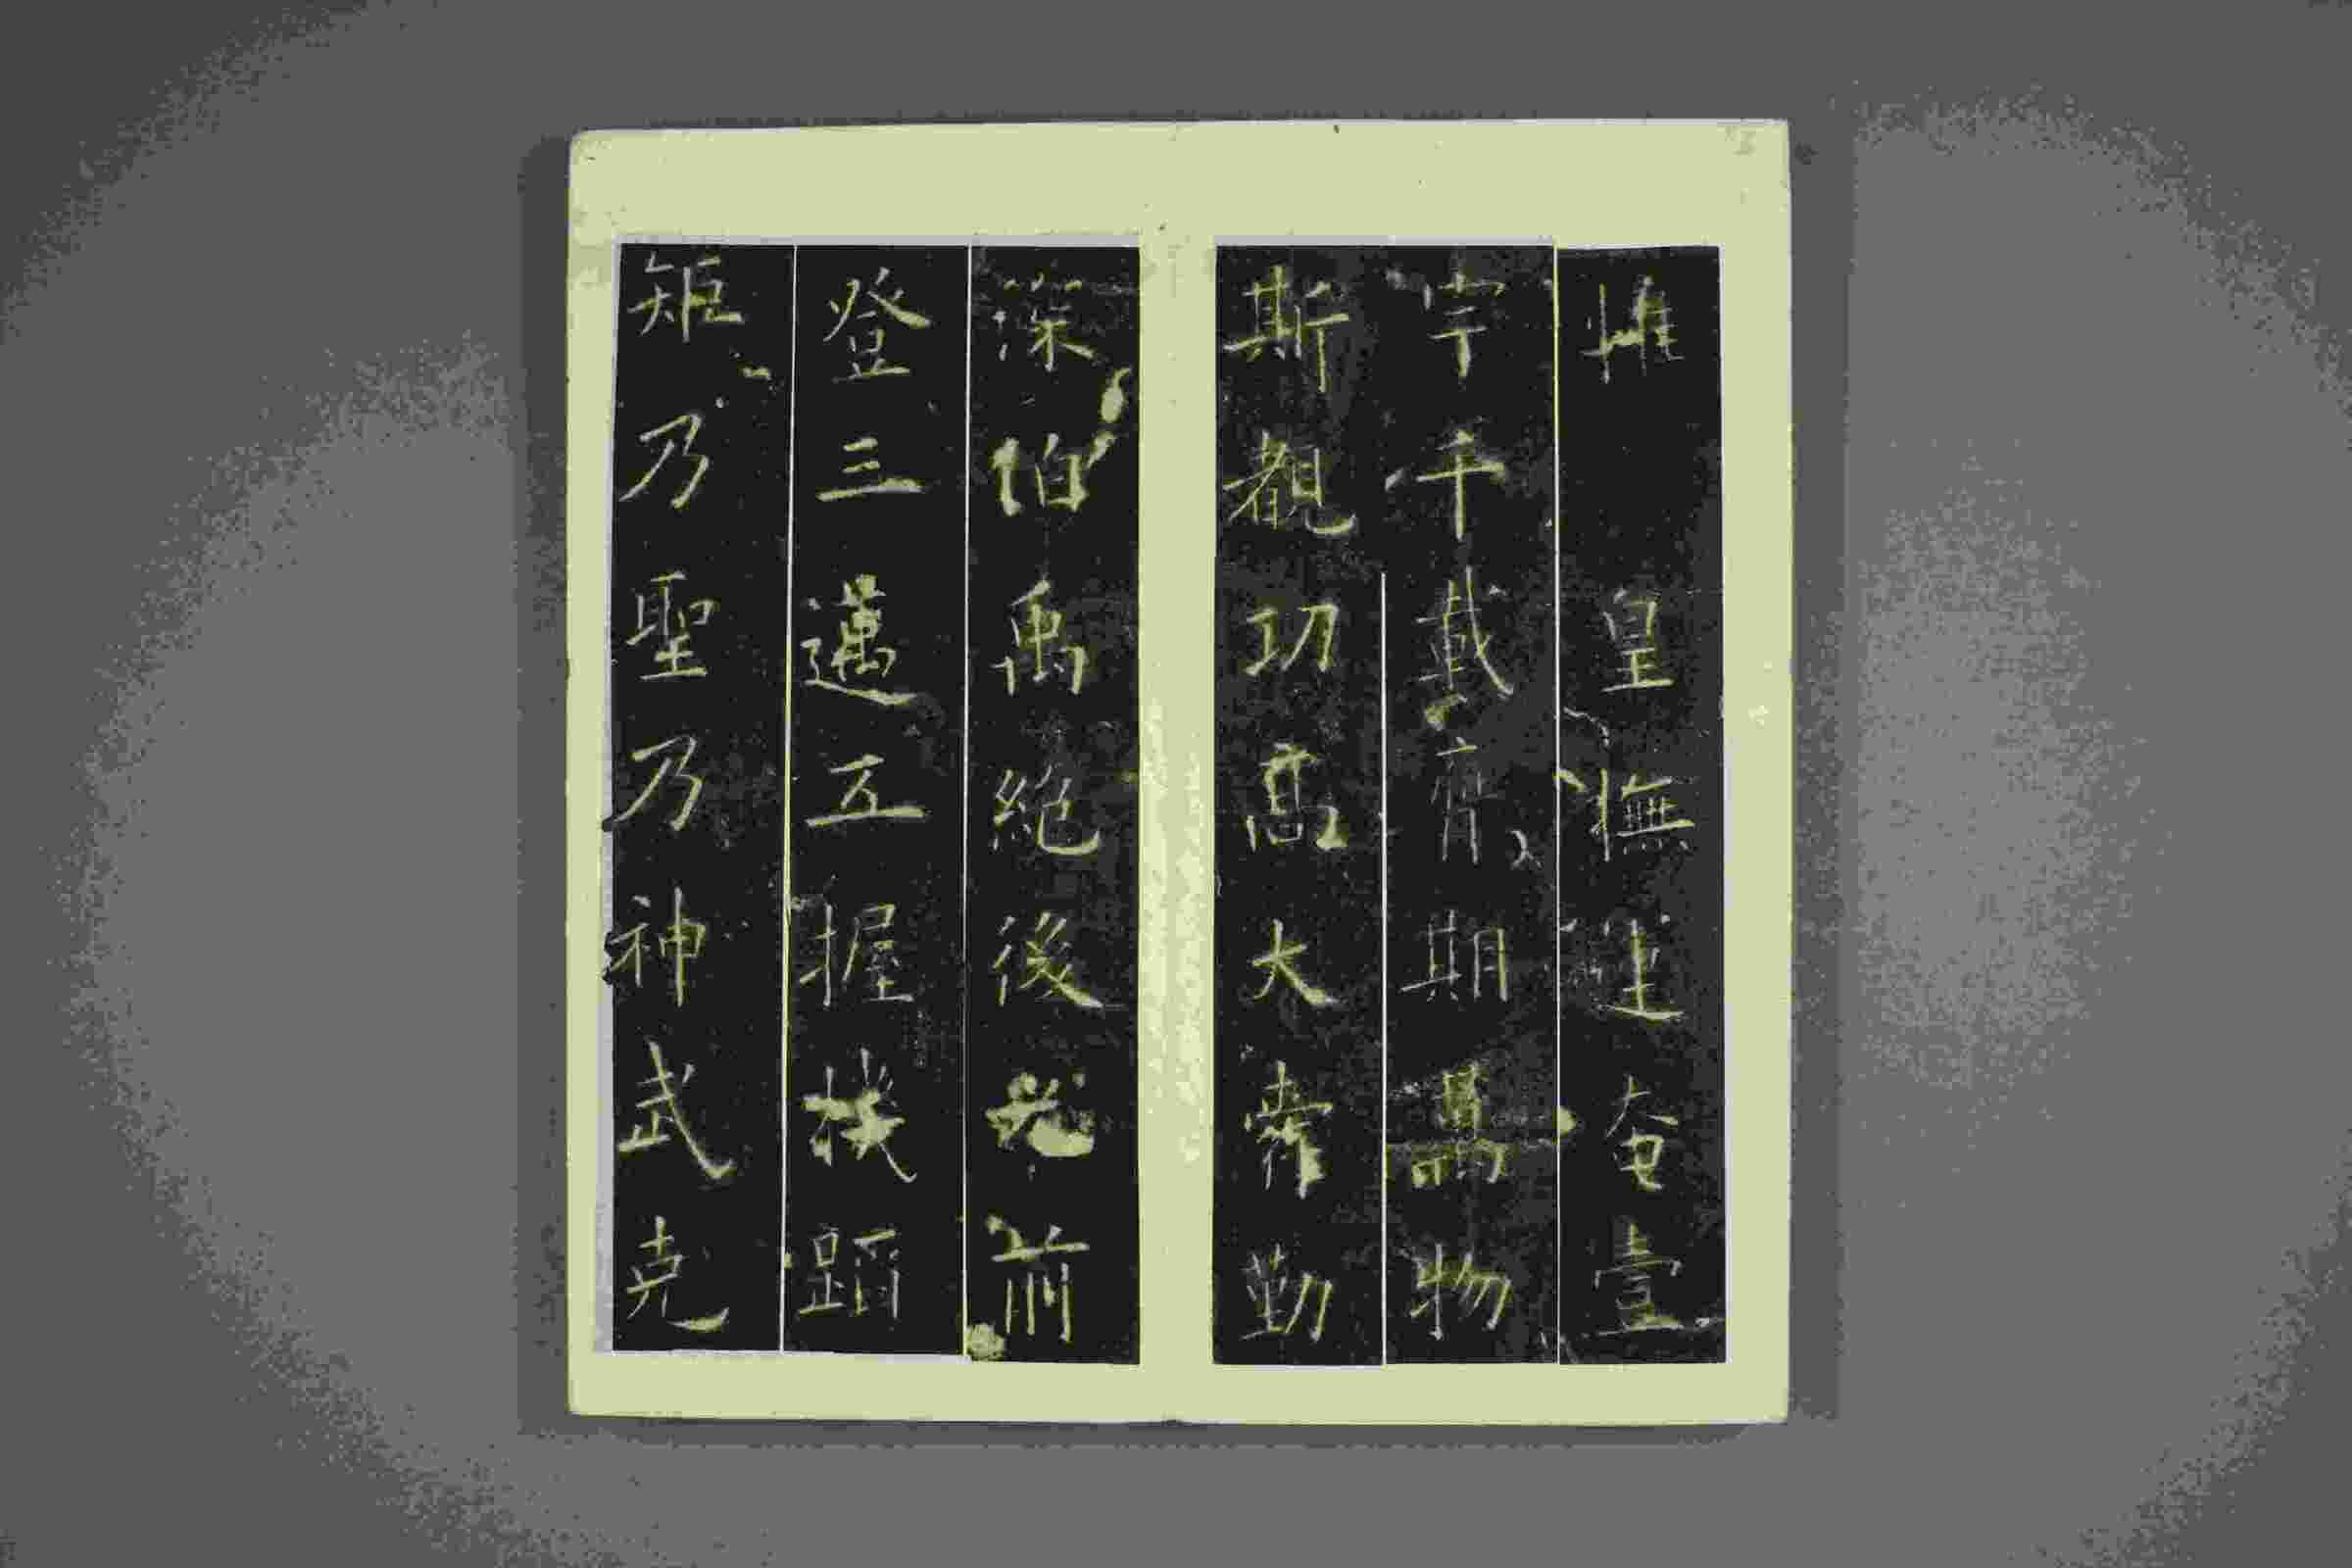 惟皇撫運奄壹
宇千載膺期萬物
斯覩功高大舜勤
深伯禹絕後光前
登三邁五握機蹈
矩乃聖乃神武克